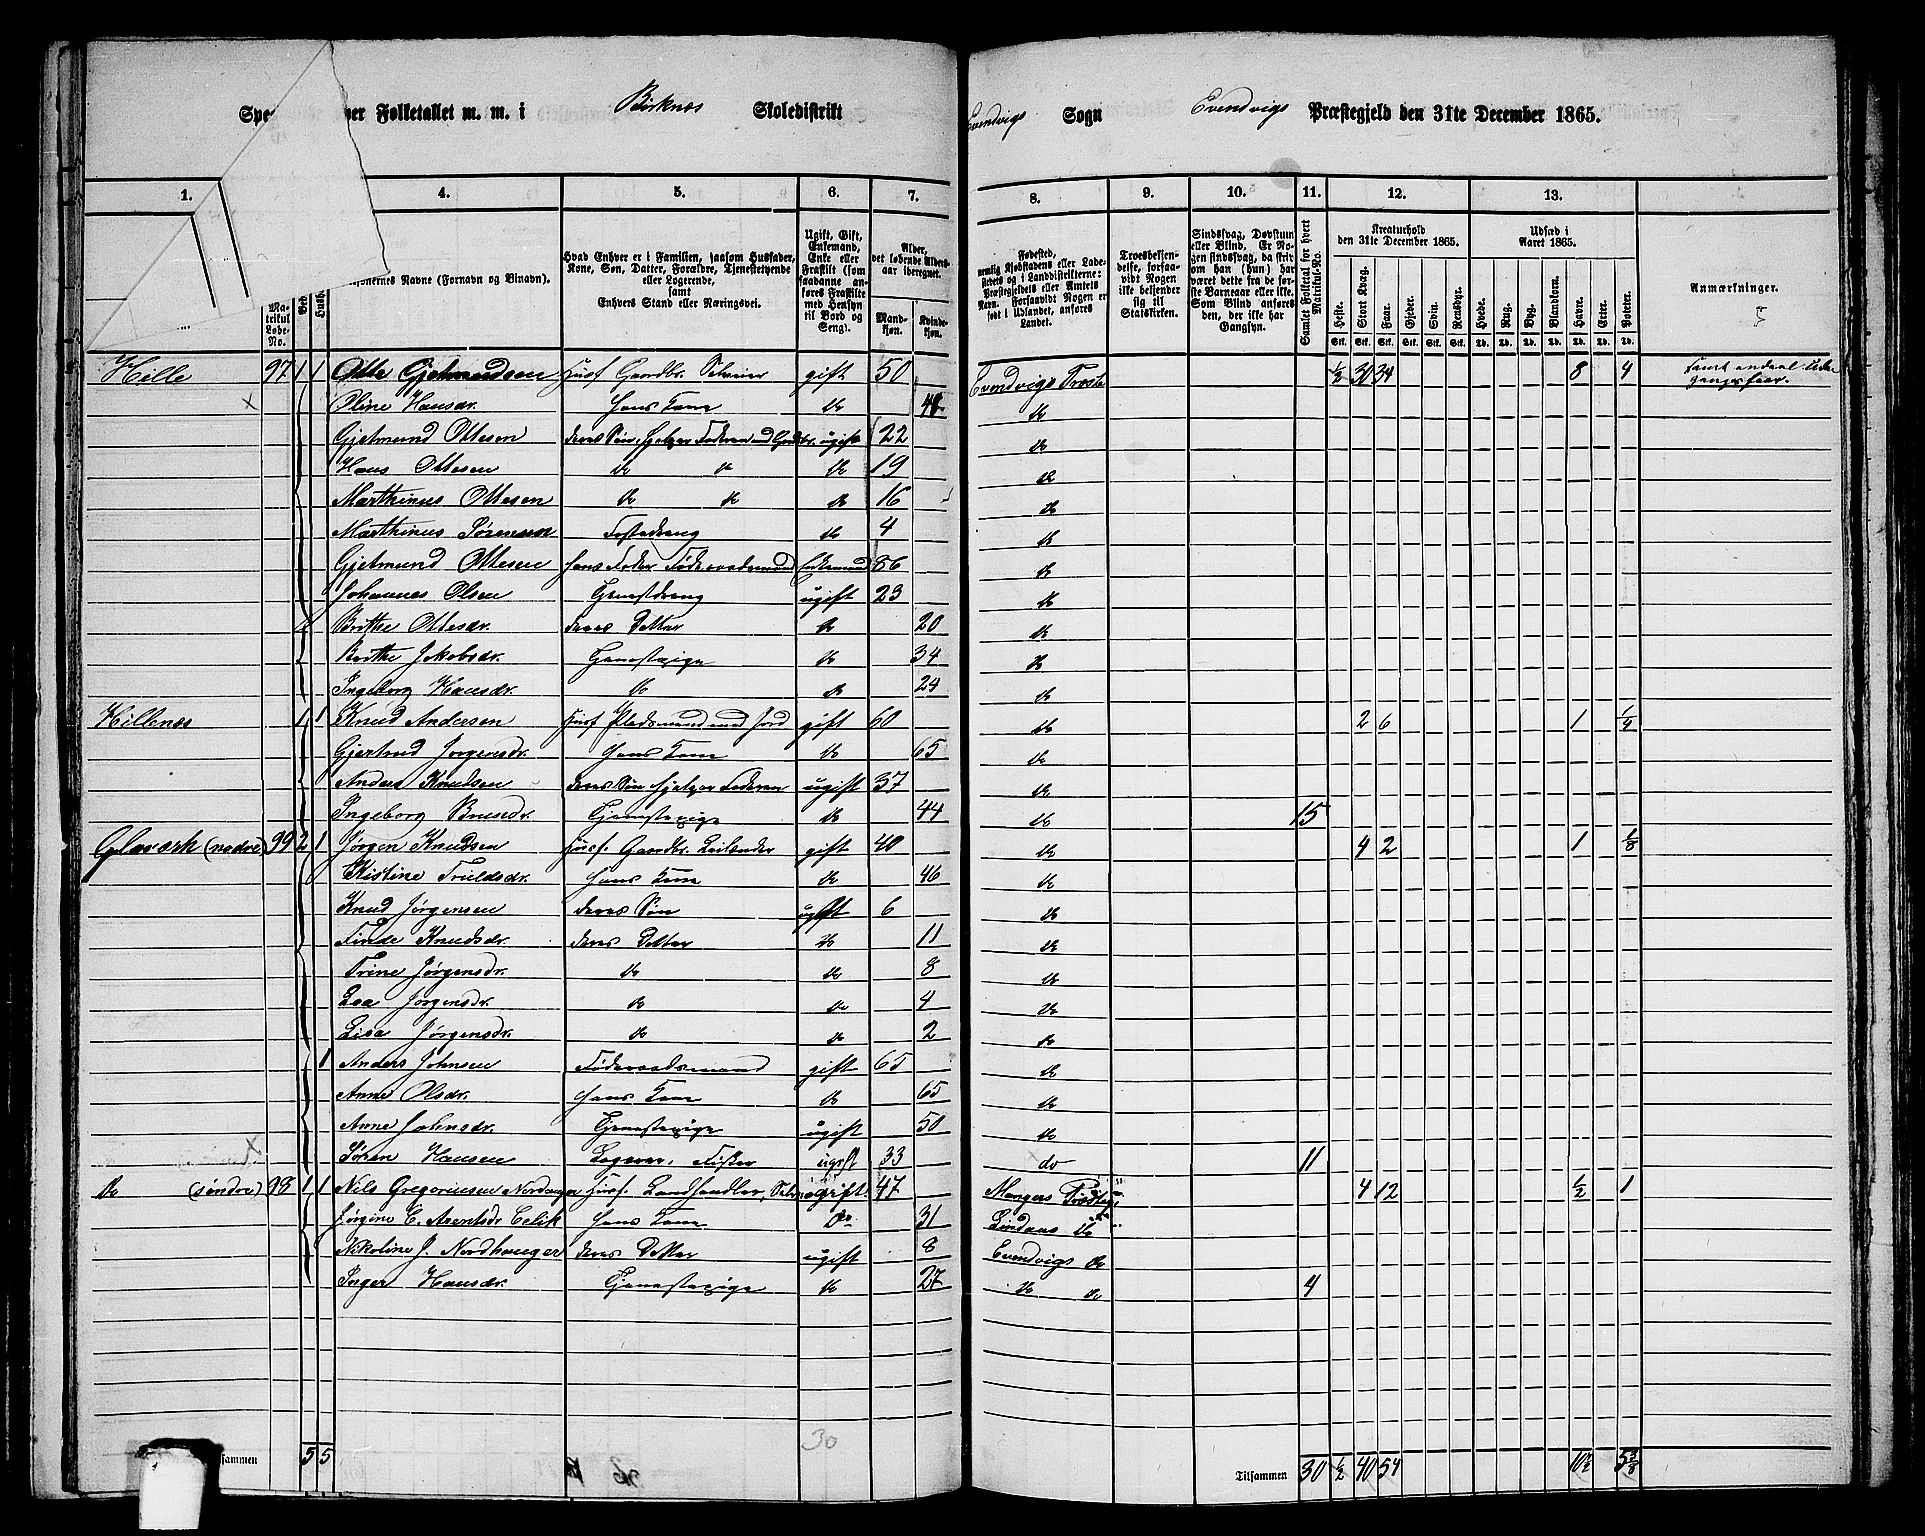 Spe ver Folketallet m. m. i Birknæs Skoledistrikt Evendvigs Sogn Evendvigs Præstegjeld den 31te December 1865.
1. 4. 5. 6. 7. 8. 9. 10. 11. 12. 13.
Matrikul Løbe-No.
Navne (Fornavn og Binavn).
Hvad Enhver er i Familien, saasom Husfader, Kone, Søn, Datter, Forældre, Tjenestetyende eller Logerende, samt Enhvers Stand eller Næringsvei.
Ugift, Gift, Enkemand, Enke eller Fraskilt (som saadanne anføres Fraskilte med Hensyn til Bord og Seng).
Alder, det løbende Aldersaar iberegnet.
Mandkjøn. Kvindekjøn.
Fødested, nemlig Kjøbstadens eller Ladestedets og i Landdistrikterne: Præstegjeldets eller Amtets Navn. Forsaavidt Nogen er født i Udlandet, anføres Landet.
Troesbekjendelse, forsaavidt Nogen ikke bekjender sig til Statskirken.
Sindssvag, Døvstum eller Blind. Er Nogen sindssvag, da skriv om han (hun) har været dette fra de første Barneaar eller ikke. Som Blind anføres den, der ikke har Gangsyn.
Samlet Folketal for hvert Matrikuls-No.
Kreaturhold den 31te December 1865.
Heste. Stort Kvæg. Faar. Gjeder. Svin. Rensdyr.
Udsæd i Aaret 1865.
Hvede. Rug. Byg. Blandkorn. Havre. Erter. Poteter.
Anmærkninger.
Stk. Stk. Stk. Stk. Stk. Stk. Td. Td. Td. Td. Td. Td. Td.
Hille 97 1 1 Otte Gjetmundsen Husf Gaardbr. Selveier gift 50 Evendvigs Præste 1/2 30 34 8 4
Oline Hansdr. Hans Kone do do
Gjetmund Ottesen deres Søn, hjelper Faderen med Gdbr. ugift 22 do
Hans Ottesen do do do 19 do
Marthinus Ottesen do do do 16 do
Marthinus Sørensen Fosterdreng do 4 do
Gjetmund Ottesen Hans Fader Føderaadsmand Enkemand 86 do
Johannes Olsen Tjenestdreng ugift 23 do
Brithe Ottesdr. deres Datter do 20 do
Berthe Jakobsdr. Tjenestepige do 34 do
Ingeborg Hansdr. do do 24 do
Hillenæs 1 1 Knud Andersen Husf Pladsmand med Jord gift 60 do 2 6 1 1/4
Gjertrud Jørgensdr. Hans Kone do 65 do
Anders Knudsen deres Søn hjelper Faderen ugift 37 do
Ingeborg Brusdr. Tjenestepige do 44 do 15
Glaværk (nedre) 99 2 1 Jørgen Knudsen Husf. Gaardbr. Leilænder gift 40 do 4 2 1 1/8
Kistine Truldsdr. Hans Kone do 46 do
Knud Jørgensen deres Søn ugift 6 do
Finde Knudsdr. deres Datter do 11 do
Trine Jørgensdr. do do 8 do
Lea Jørgensdr. do do 4 do
Lisa Jørgensdr. do do 2 do
1 Anders Johnsen Føderaadsmand gift 65 do
Anne Olsdr. Hans Kone do 65 do
Anne Johnsdr. Tjenestepige ugift 50 do
Søren Hansen Logerer, Fisker ugift 33 do 11
do (søndre) 98 1 1 Nils Gregoriusen Nordanger Husf. Landhandler, gift. 47 Mangers 4 12 1/2 1
Jørgine C. Arentsdr Celik Hans Kone do 31 Lindaas do
Nikoline J. Nordhanger deres Datter ugift 8 Evendvigs do
Inger Hansdr. Tjenestepige do 27 do do 4
sammen 5 5 30 Tilsammen 30 1/2 40 54 10 1/2 5 3/8